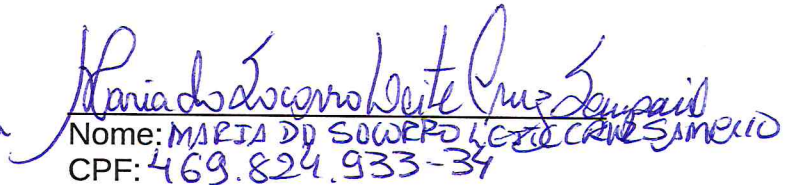 Maria do Socorro Leite Cruz Sampaio
Nome: MARIA DO SOCORRO LEITE CRUZ SAMPAIO
CPF: 469.824.933-34